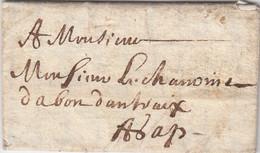 A Monsieur
Monsieur Le chanoine
dabon dantraix
A Gap